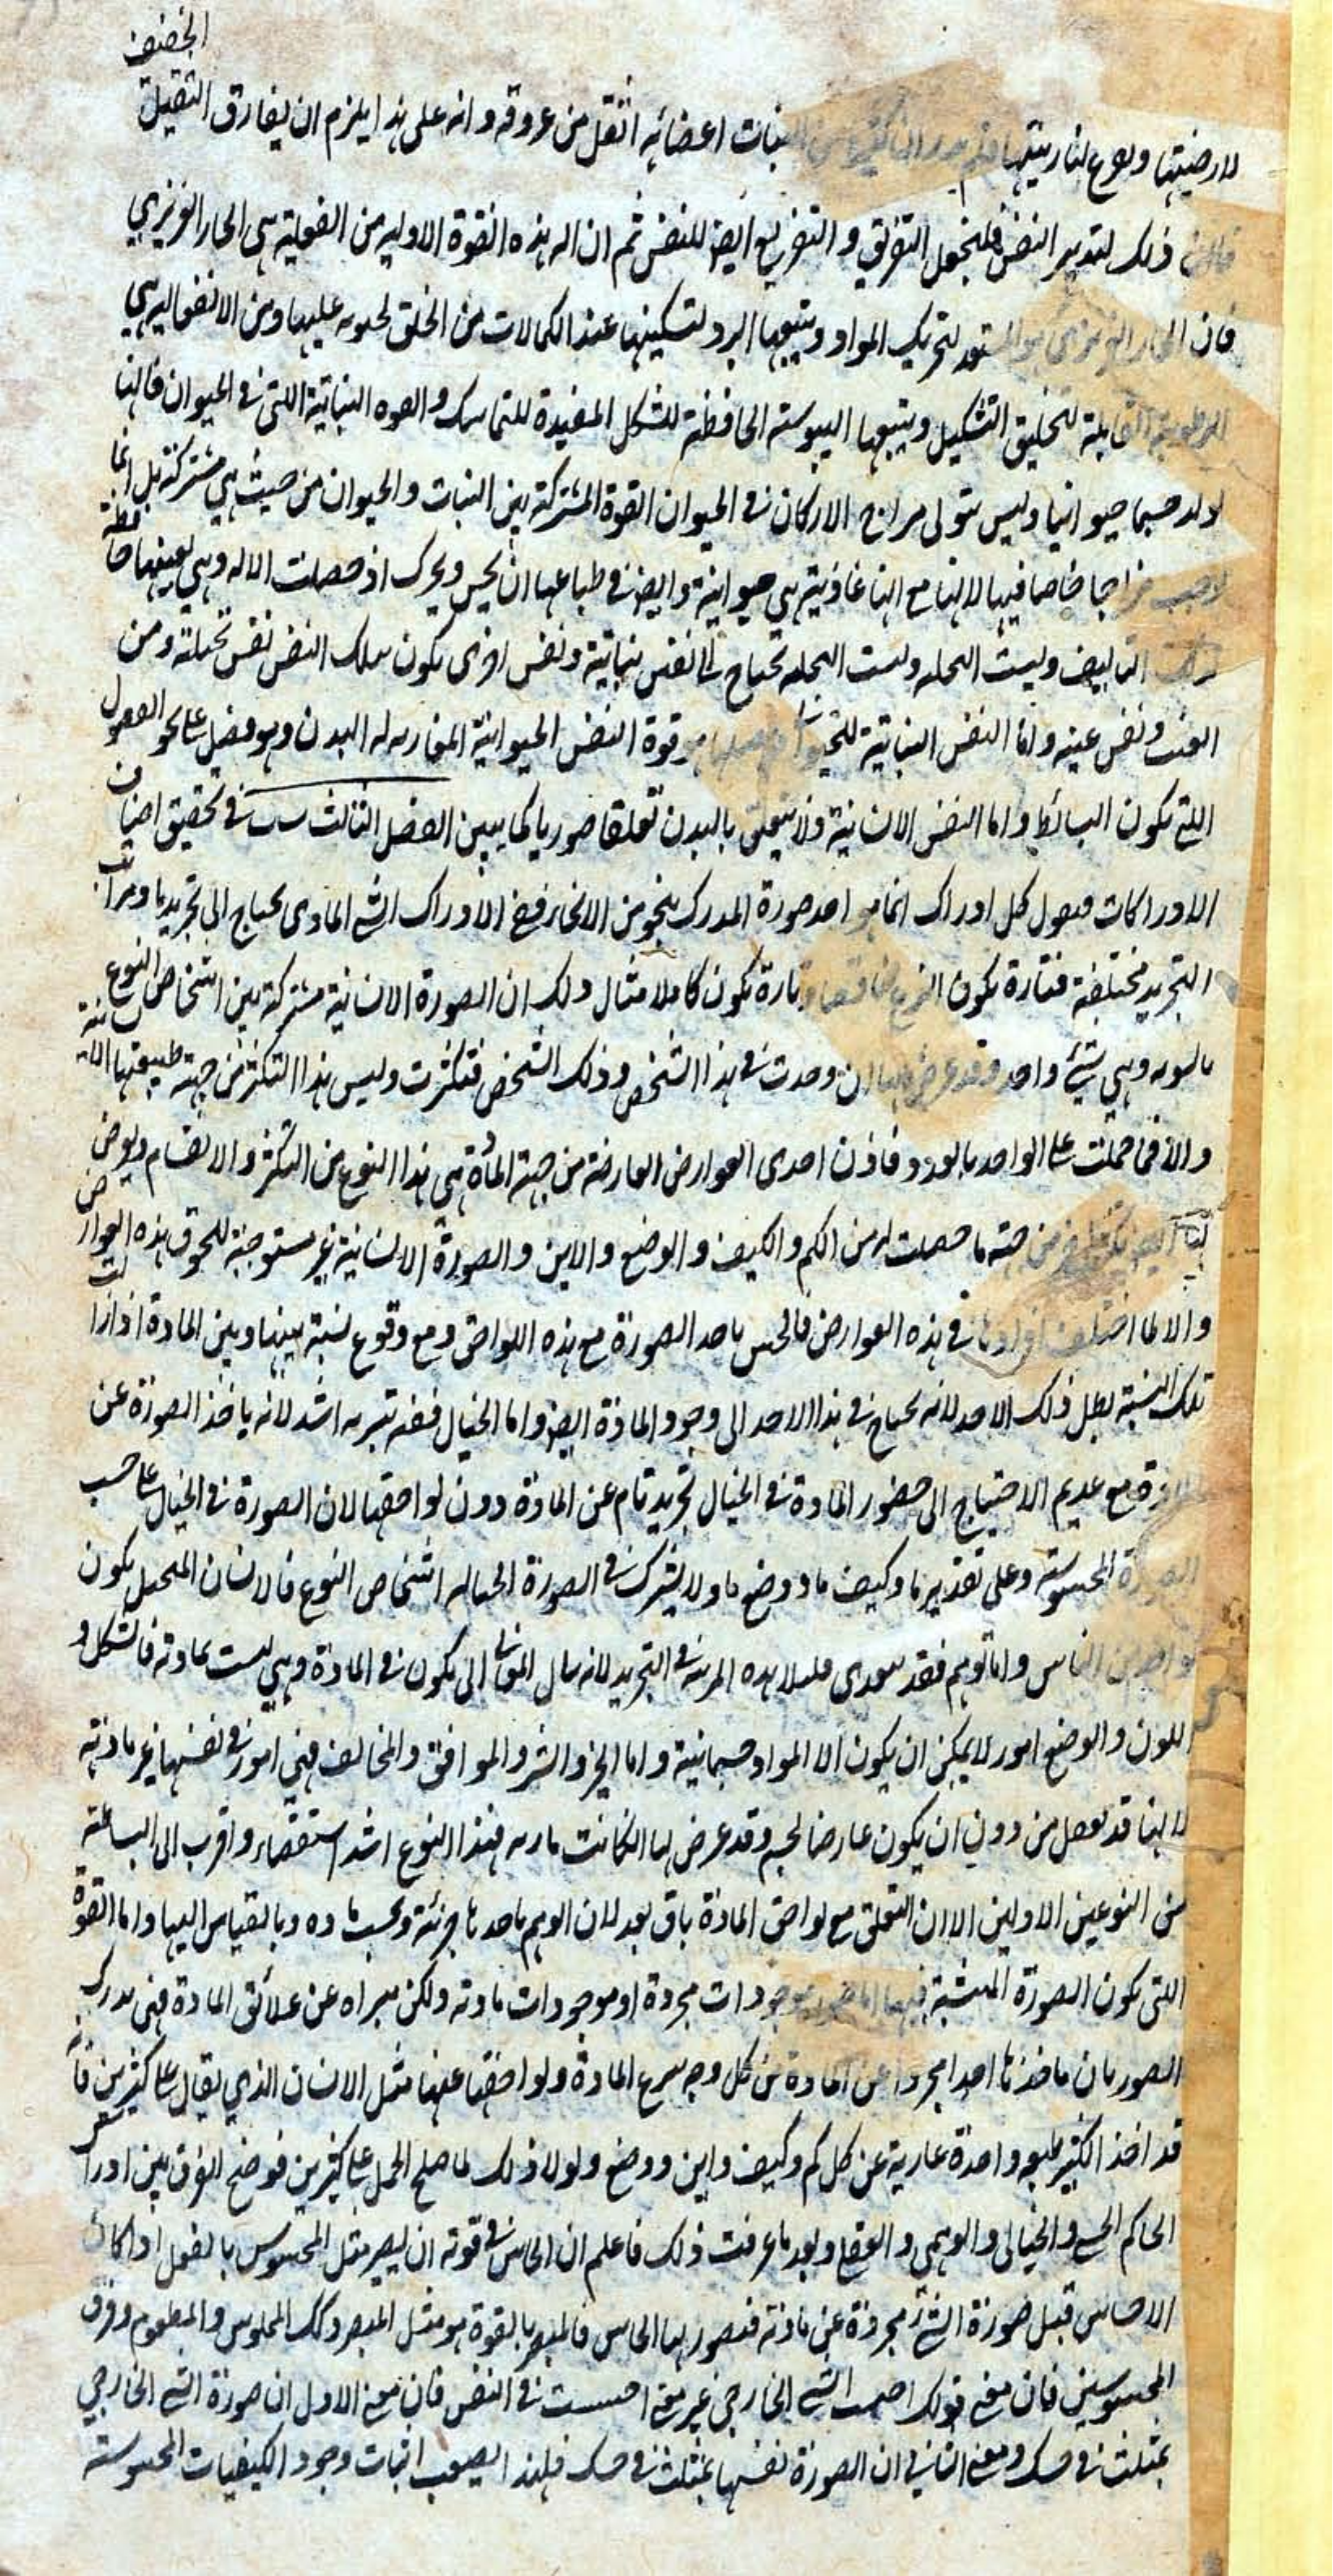 الخفيف
لارضيتها وفرع لناريتها النبات اعضائه اثقل من عروقه وانه على هذا يلزم ان يفارق الثقيل
ذلك لتدبير النفس فلنجعل التفريق و التفريع ايض للنفس ثم ان اله هذه القوة الاوليه من الفعلية هي الحار الغريزي
فان الحار الغريزي هو المستعد لتحريك المواد ويتبعها البرد لتسكينها عند الكمالات من الخلق لحويه عليها ومن الانفعاليه هي
الرطوبة القابلة للتخليق التشكيل ويتبعها اليبوسته الحافظة للشكل المفيدة للتماسك و القوه النباتية اللتى فى الحيوان فانها
تولد جسما حيوانيا وليس يتولى مزاج الاركان فى الحيوان القوة المشتركة بين النبات والحيوان من حيث هي مشتركة بل انما
توجب مزاجا خاصا فيها لانها مع انها غاذية هي حيوانية وايض فى طباعها ان يحس ويحرك اذ حصلت الاله وهي بعينها حافظة
التاليف وليست الجمله تحتاج الى نفس نباتية ونفس اخرى يكون تلك النفس نفس نخلة ومن
العنب ونفس عنبه واما النفس النباتية للحيوان قوة النفس الحيوانية المقارنه له البدن وهو فصل على نحو الفصول
التى يكون البسائط واما النفس الانسانية فلا يتعلق بالبدن تعلقا صوريا كما يبين الفصل الثالث فى تحقيق اصناف
الادراكات فنقول كل ادراك انما هو اخذ صورة المدرك بنحو من الانحاء ففى الادراك الشئ المادى يحتاج الى تجريد ما ومراتب
التجريد مختلفة فتارة يكون النزع ناقصا وتارة يكون كاملا مثال ذلك ان الصورة الانسانية مشتركة بين اشخاص النوع
بالسويه وهي شئ واحد وقد عرض لها ان وجدت فى هذا الشخص و ذلك الشخص فتكثرت وليس هذا التكثر من جهة طبيعتها الانسانية
والا فما حملت على الواحد بالعدد فاذن احدى العوارض العارضة من جهة المادة هي هذا النوع من التكثر والانقسام ويعرض
لها ايض من جهة ما حصلت له من الكم والكيف والوضع والاين والصورة الانسانية غير مستوجبة للحوق هذه العوارض
والا لما اختلف افرادها فى هذه العوارض فالحس ياخذ الصورة مع هذه اللواحق ومع وقوع نسبة بينها وبين المادة اذا زالت
تلك النسبة بطل ذلك الاخذ لانه يحتاج فى هذا الاخذ الى وجود المادة ايض واما الخيال ففيه تبريه اشد لانه ياخذ الصورة عن
المادة مع عديم الاحتياج الى حضور المادة فى الخيال تجريد تام عن المادة دون لواحقها لان الصورة فى الخيال على حسب
الصورة المحسوسة وعلى تقدير ما وكيف ما و وضع ما ولا يشترك فى الصورة الخياليه اشخاص النوع فالانسان المتخيل يكون
كواحد من الناس واما توهم فقد يتعدى قليلا هذه المرتبه فى التجريد لانه ينال المعانى التى يكون فى المادة وهي ليست بمادته فالشكل و
اللون والوضع امور لا يمكن ان يكون الا المواد جسمانية واما الخير والشر والموافق والمخالف فهي امور فى نفسها غير مادية
لانها قد تعقل من دون ان يكون عارضا لجسم وقد عرض لها ان كانت ماديه فهذا النوع اشد استقصاء واقرب الى البساطة
من النوعين الاولين الا ان التعلق مع لواحق المادة باق بعد لان الوهم ياخذها جزئية وبحسب ماده وبالقياس اليها واما القوة
التى يكون الصورة المثبتة فيها موجودات مجردة او موجودات ماديه ولكن مبراه عن علائق المادة فهي يدرك
الصور بان ياخذها اخذا مجردا عن المادة من كل وجه ينزع المادة ولواحقها عنها مثل الانسان الذي يقال على كثيرين فانه
قد اخذ الكثير طبيعه واحدة عارية عن كل كم وكيف واين ووضع ولولا ذلك لما صلح الحمل على كثيرين فوضح الفرق بين ادراك
الحاكم الحسى والخيالى والوهمى والعقلى وبعد ما عرفت ذلك فاعلم ان الحاس فى قوته ان يصير مثل المحسوس بالفعل اذ كان
الاحساس قبول صورة الشئ مجردة عن مادته فتصور بها الحاس فالمبصر بالقوة هو مثل المبصر وكك الملموس والمطعوم وفرق
المحسوسين فان معنى قولك احسست الشئ الخارجى غير معنى احسست فى النفس فان معنى الاول ان صورة الشئ الخارجى
تمثلت فى حسك ومعنى الثانى ان الصورة نفسها تمثلت فى حسك فلهذا يصعب اثبات وجود الكيفيات المحسوسته